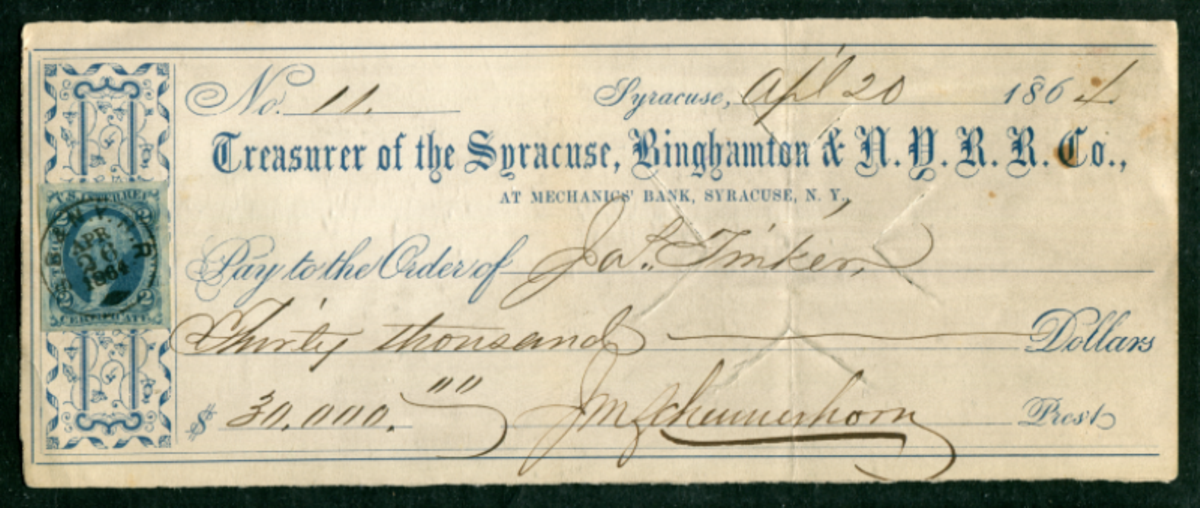 No. 11. Syracuse, Apl 20 1864
Treasurer of the Syracuse, Binghamton & N. Y. R. R. Co.,
AT MECHANICS' BANK, SYRACUSE, N. Y.,
Pay to the Order of Jas. Tinker,
Thirty thousand Dollars
$ 30,000. "" J M Schermerhorn Prest
U.S. INTER. REV.
APR
20
1864
2 2
CERTIFICATE